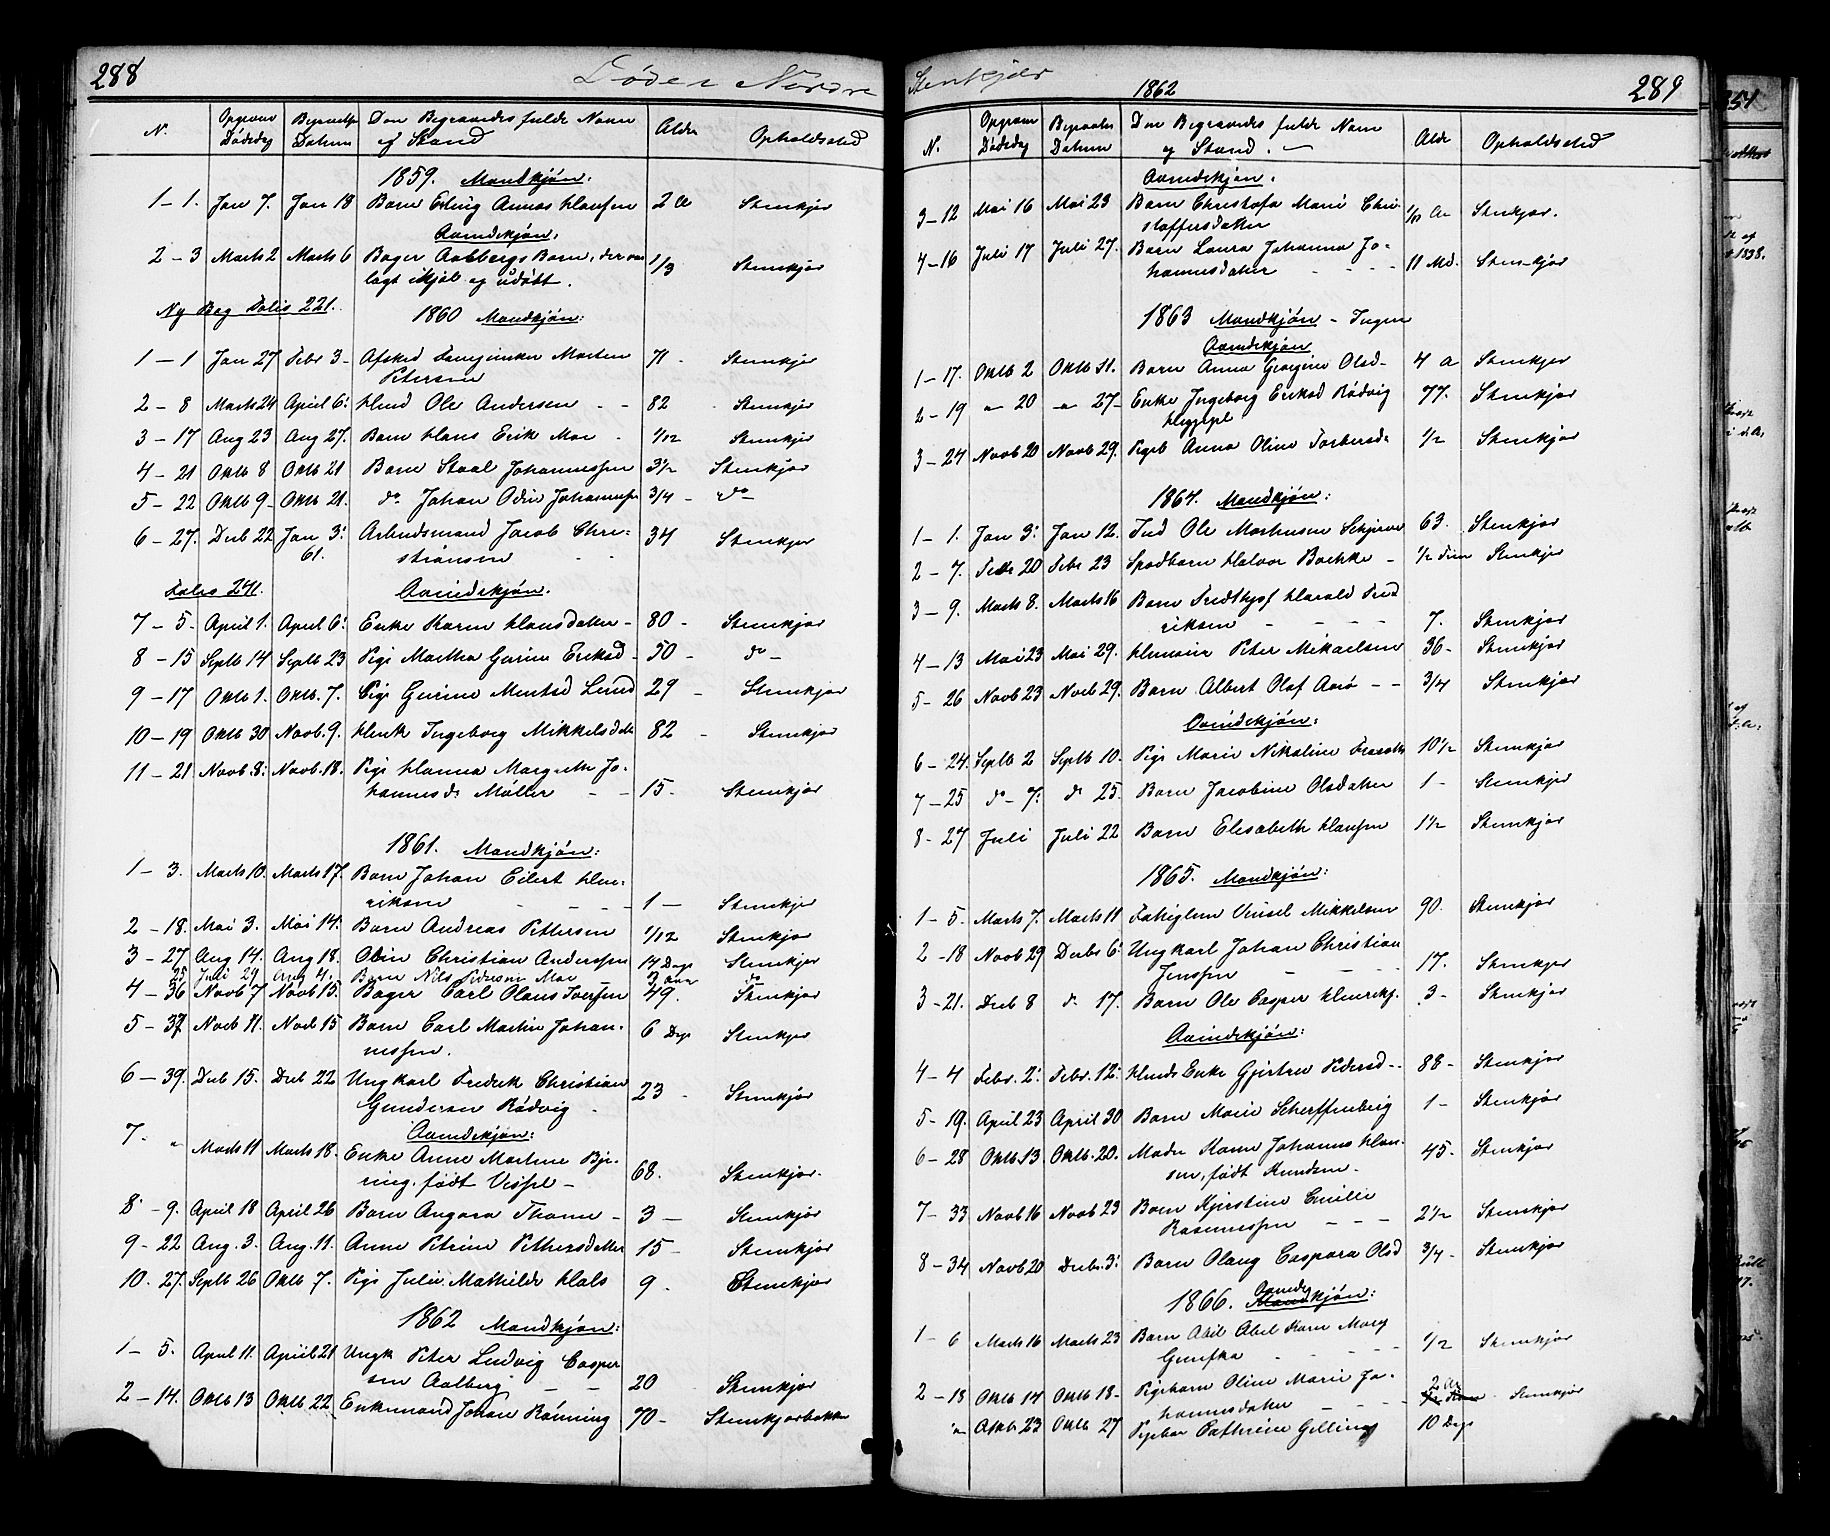 288
Døde i Nordre
N. Opgiven Dødsdag Begravelses Datum Den Begravedes fulde Navn og Stand Alder Opholdssted
1859. Mandkjøn:
1-1. Jan 7. Jan 18 Barn Erling Annas Hansen 2 A Stenkjær
Qvindekjøn:
2-3 Marts 2 Marts 6 Bager Aalbergs Barn, der var 1/3 Stenkjær
lagt ikjøl og udøbt.
Ny Bog Folio 221.
1860 Mandkjøn:
1-1 Jan 27 Febr 3- Afsked Morten 71- Stenkjær
Petersen
2-8 Marts 24 April 6: Huusmd Ole Andersen 82 Stenkjær
3-17 Aug 23 Aug 27. Barn Hans Erik Moe 1/12 Stenkjær
4-21 Oktb 8 Oktb 21 Barn Johannessen 3 1/2 Stenkjær
5-22 Oktb 9- Oktb 21. do Johan Odin Johannesen 3/4 - do -
6-27. Decb 22 Jan 3: Arbeidsmand Jacob Chri- 34 Stenkjær
61. stiansen
Folio 241. Qvindekjøn.
7-5. April 1. April 6: Enke Karen Hansdatter - 80 - Stenkjær
8-15 Septb 14 Septb 23 Pige Martha Gurine Eriksd - 50 - do -
9-17 Oktb 1. Oktb. 7. Pige Gurine Mentsd Lund 29 - Stenkjær
10-19 Oktb 30 Novb. 9. Ingeborg Mikkelsdatt 82 - Stenkjær
11-21 Novb. 8: Novb. 18. Pige Hanna Margrethe Jo-
hannesd. Møller - - 15- Stenkjær
1861. Mandkjøn:
1-3. Marts 10. Marts 17. Barn Johan Eilert Hen-
riksen 1- Stenkjær
2-18. Mai 3. Mai 14. Barn Andreas Pettersen 1/12 Stenkjær
3-27 Aug 14. Aug 18. Odin Christian Anderssen 14 Dage Stenkjær
25 Juli 29 Aug 4. Barn Nils Pedersen Moe 2 Aar do
4-36 Novb 7 Novb 15. Bager Carl Olaus Iversen 49. Stenkjær
5-37 Novb 11. Novb 15 Barn Carl Martin Johan- 6 Dge Stenkjær
nessen.
6-39. Decb 15. Decb 22 Ungkarl Fredrik Christian
Gundersen Rødvig - 23 - Stenkjær
Qvindekjøn:
7- " Marts 11 Marts 18. Enke Anne Martine Bje-
ring, født Wessel - 68. Stenkjær.
8-9. April 18 April 26 Barn Angara Thone - 3 - Stenkjær
9-22 Aug. 3. Aug. 11. Anne Petrine Pettersdatter 15 - Stenkjær
10. 27. Septb 26 Oktb 7. Pige Julie Mathilde Hals 9. Stenkjær
1862 Mandkjøn:
1-5. April 11. April 21 Ungk Peter Ludvig Casper
sen Aalberg - - 20 Stenkjær
2-14. Oktb 13 Oktb 22 Enkemand Johan Rønning 70- Stenkjærbakken
Stenkjær 1862 289
N. Opgiven Dødsdag Begravelses Datum Den Begravedes fulde Navn og Stand. Alder Opholdssted
Qvindekjøn.
3-12 Mai 16 Mai 23 Barn Christofa Marie Chri- 1/12 Aar Stenkjær.
stoffersdatter
4-16 Juli 17 Juli 27. Barn Laura Johanna Jo-
hannesdatter - - - 11 Md. Stenkjær
1863 Mandkjøn - Ingen
Qvindekjøn
1-17. Oktb 2 Oktb 11. Barn Anna Georgine Olsd- 4 A Stenkjær
2-19 " 20 " 27- Enke Ingeborg Eriksd Rødvig 77. Stenkjær
3-24 Novb 20 Novb 29. Pigeb Anna Oline Torbersd. 1/2 Stenkjær
1864. Mandkjøn:
1-1. Jan 3: Jan 12. Ind Ole Martinsen 63. Stenkjær
2-7. Febr 20 Febr 23 Spædbarn Halvor Bachke - 1/2 Time Stenkjær
3-9. Marts 8. Marts 16 Barn Fridthjof Harald Fred
riksen - - - - 7. Stenkjær
4-13 Mai 23 Mai 29. Peter Mikaelsen 36- Stenkjær
5-26 Novb 23 Novb 29. Barn Albert Olaf Avrø - - 3/4 Stenkjær
Qvindekjøn:
6-24. Septb 2 Septb 10. Pige Marie Nikoline 10 1/2 Stenkjær
7-25 do- 7. do 25. Barn Jacobine Olsdatter 1- Stenkjær
8-27 Juli Juli 22 Barn Elisabeth Hansen 1 1/2 Stenkjær
1865. Mandkjøn:
1-5. Marts 7. Marts 11 Mikkelsen 90. Stenkjær
2-18 Novb 29 Decbr 6: Ungkarl Johan Christian
Jenssen - - - 17. Stenkjær
3-21. Decb 8 do 17. Barn Ole Casper Henriks. 3- Stenkjær
Qvindekjøn:
4-4 Febr. 2: Febr. 12: Huusmds Enke Gjertru Pedersd-- 88- Stenkjær
5-19. April 23 April 30 Barn Marie Scherffenberg 1- Stenkjær
6-28 Oktb. 13. Oktb. 20. Madm Karen Johanna Han- 45- Stenkjær
sen, født Knudsen -
7-33 Novb 16 Novb 23 Barn Kjerstine Emilie
Rasmussen - - - 2 1/2 Stenkjær
8-34 Novb 20 Decbr. 3: Barn Olaug Caspara Olsd 3/4- Stenkjær
1866. Qvindekjøn:
1-6 Marts 16 Marts 23 Barn Abel Karen Marg 1/2 Stenkjær
2-18 Oktb 14 Oktb 18- Pigebarn Oline Marie Jo- 2 Aar Stenkjær
hannesdatter - - -
" Oktb 23 Oktb 27 Pigebar Cathrine Gelling 10 Dage
351
1838.